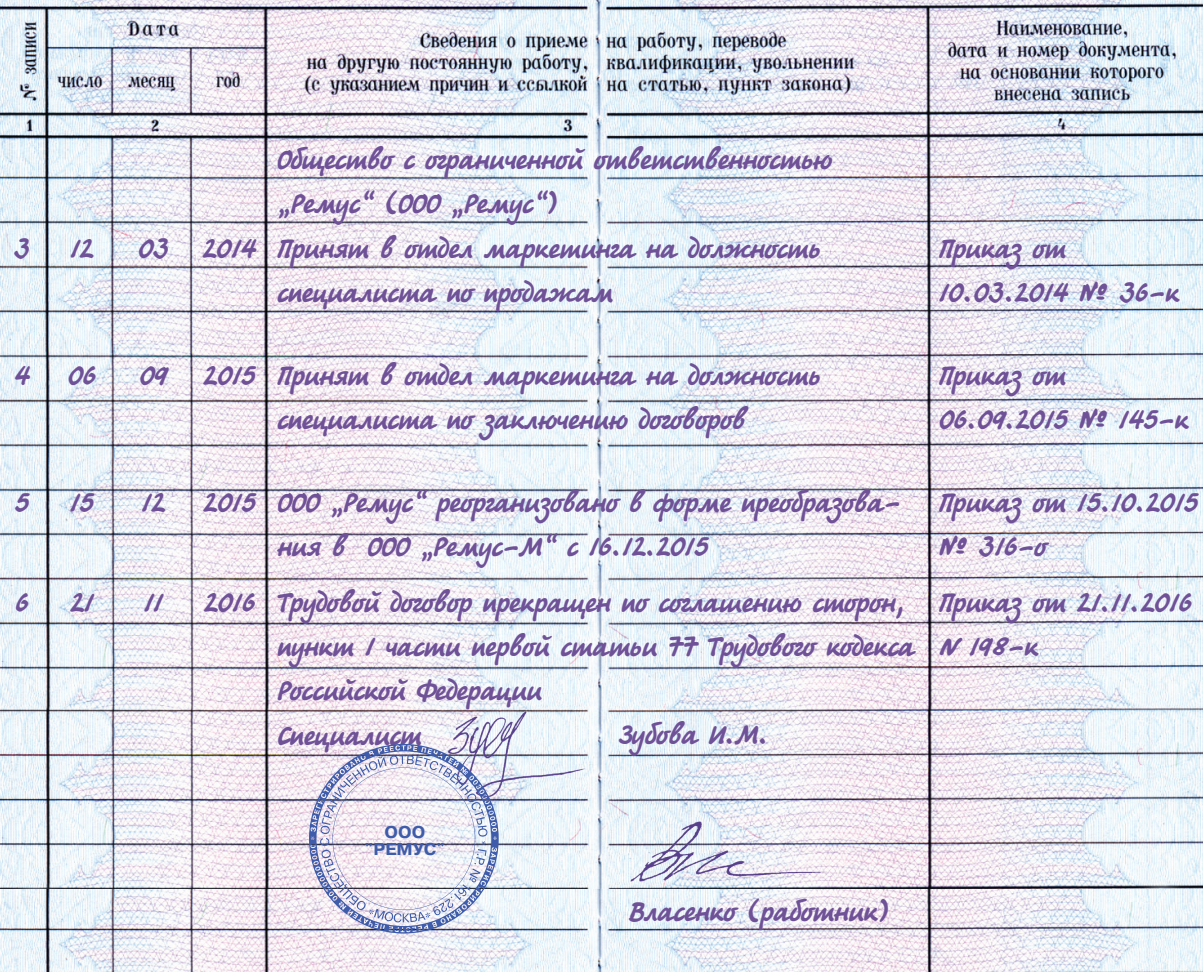 № записи
Дата
число месяц год
Сведения о приеме на работу, переводе
на другую постоянную работу, квалификации, увольнении
(с указанием причин и ссылкой на статью, пункт закона)
Наименование,
дата и номер документа,
на основании которого
внесена запись
1 2 3 4
Общество с ограниченной ответственностью
„Ремус“ (ООО „Ремус“)
3 12 03 2014 Принят в отдел маркетинга на должность Приказ от
специалиста по продажам 10.03.2014 № 36-к
4 06 09 2015 Принят в отдел маркетинга на должность Приказ от
специалиста по заключению договоров 06.09.2015 № 145-к
5 15 12 2015 ООО „Ремус“ реорганизовано в форме преобразова- Приказ от 15.10.2015
ния в ООО „Ремус-М“ с 16.12.2015 № 316-о
6 21 11 2016 Трудовой договор прекращен по соглашению сторон, Приказ от 21.11.2016
пункт 1 части первой статьи 77 Трудового кодекса N 198-к
Российской Федерации
Специалист Зубова И.М.
ЗАРЕГИСТРИРОВАНО В РЕЕСТРЕ ПЕЧАТЕЙ №
ОБЩЕСТВО С ОГРАНИЧЕННОЙ ОТВЕТСТВЕННОСТЬЮ * Г.Р. № 161.229
*МОСКВА*
ООО
"РЕМУС"
Власенко (работник)